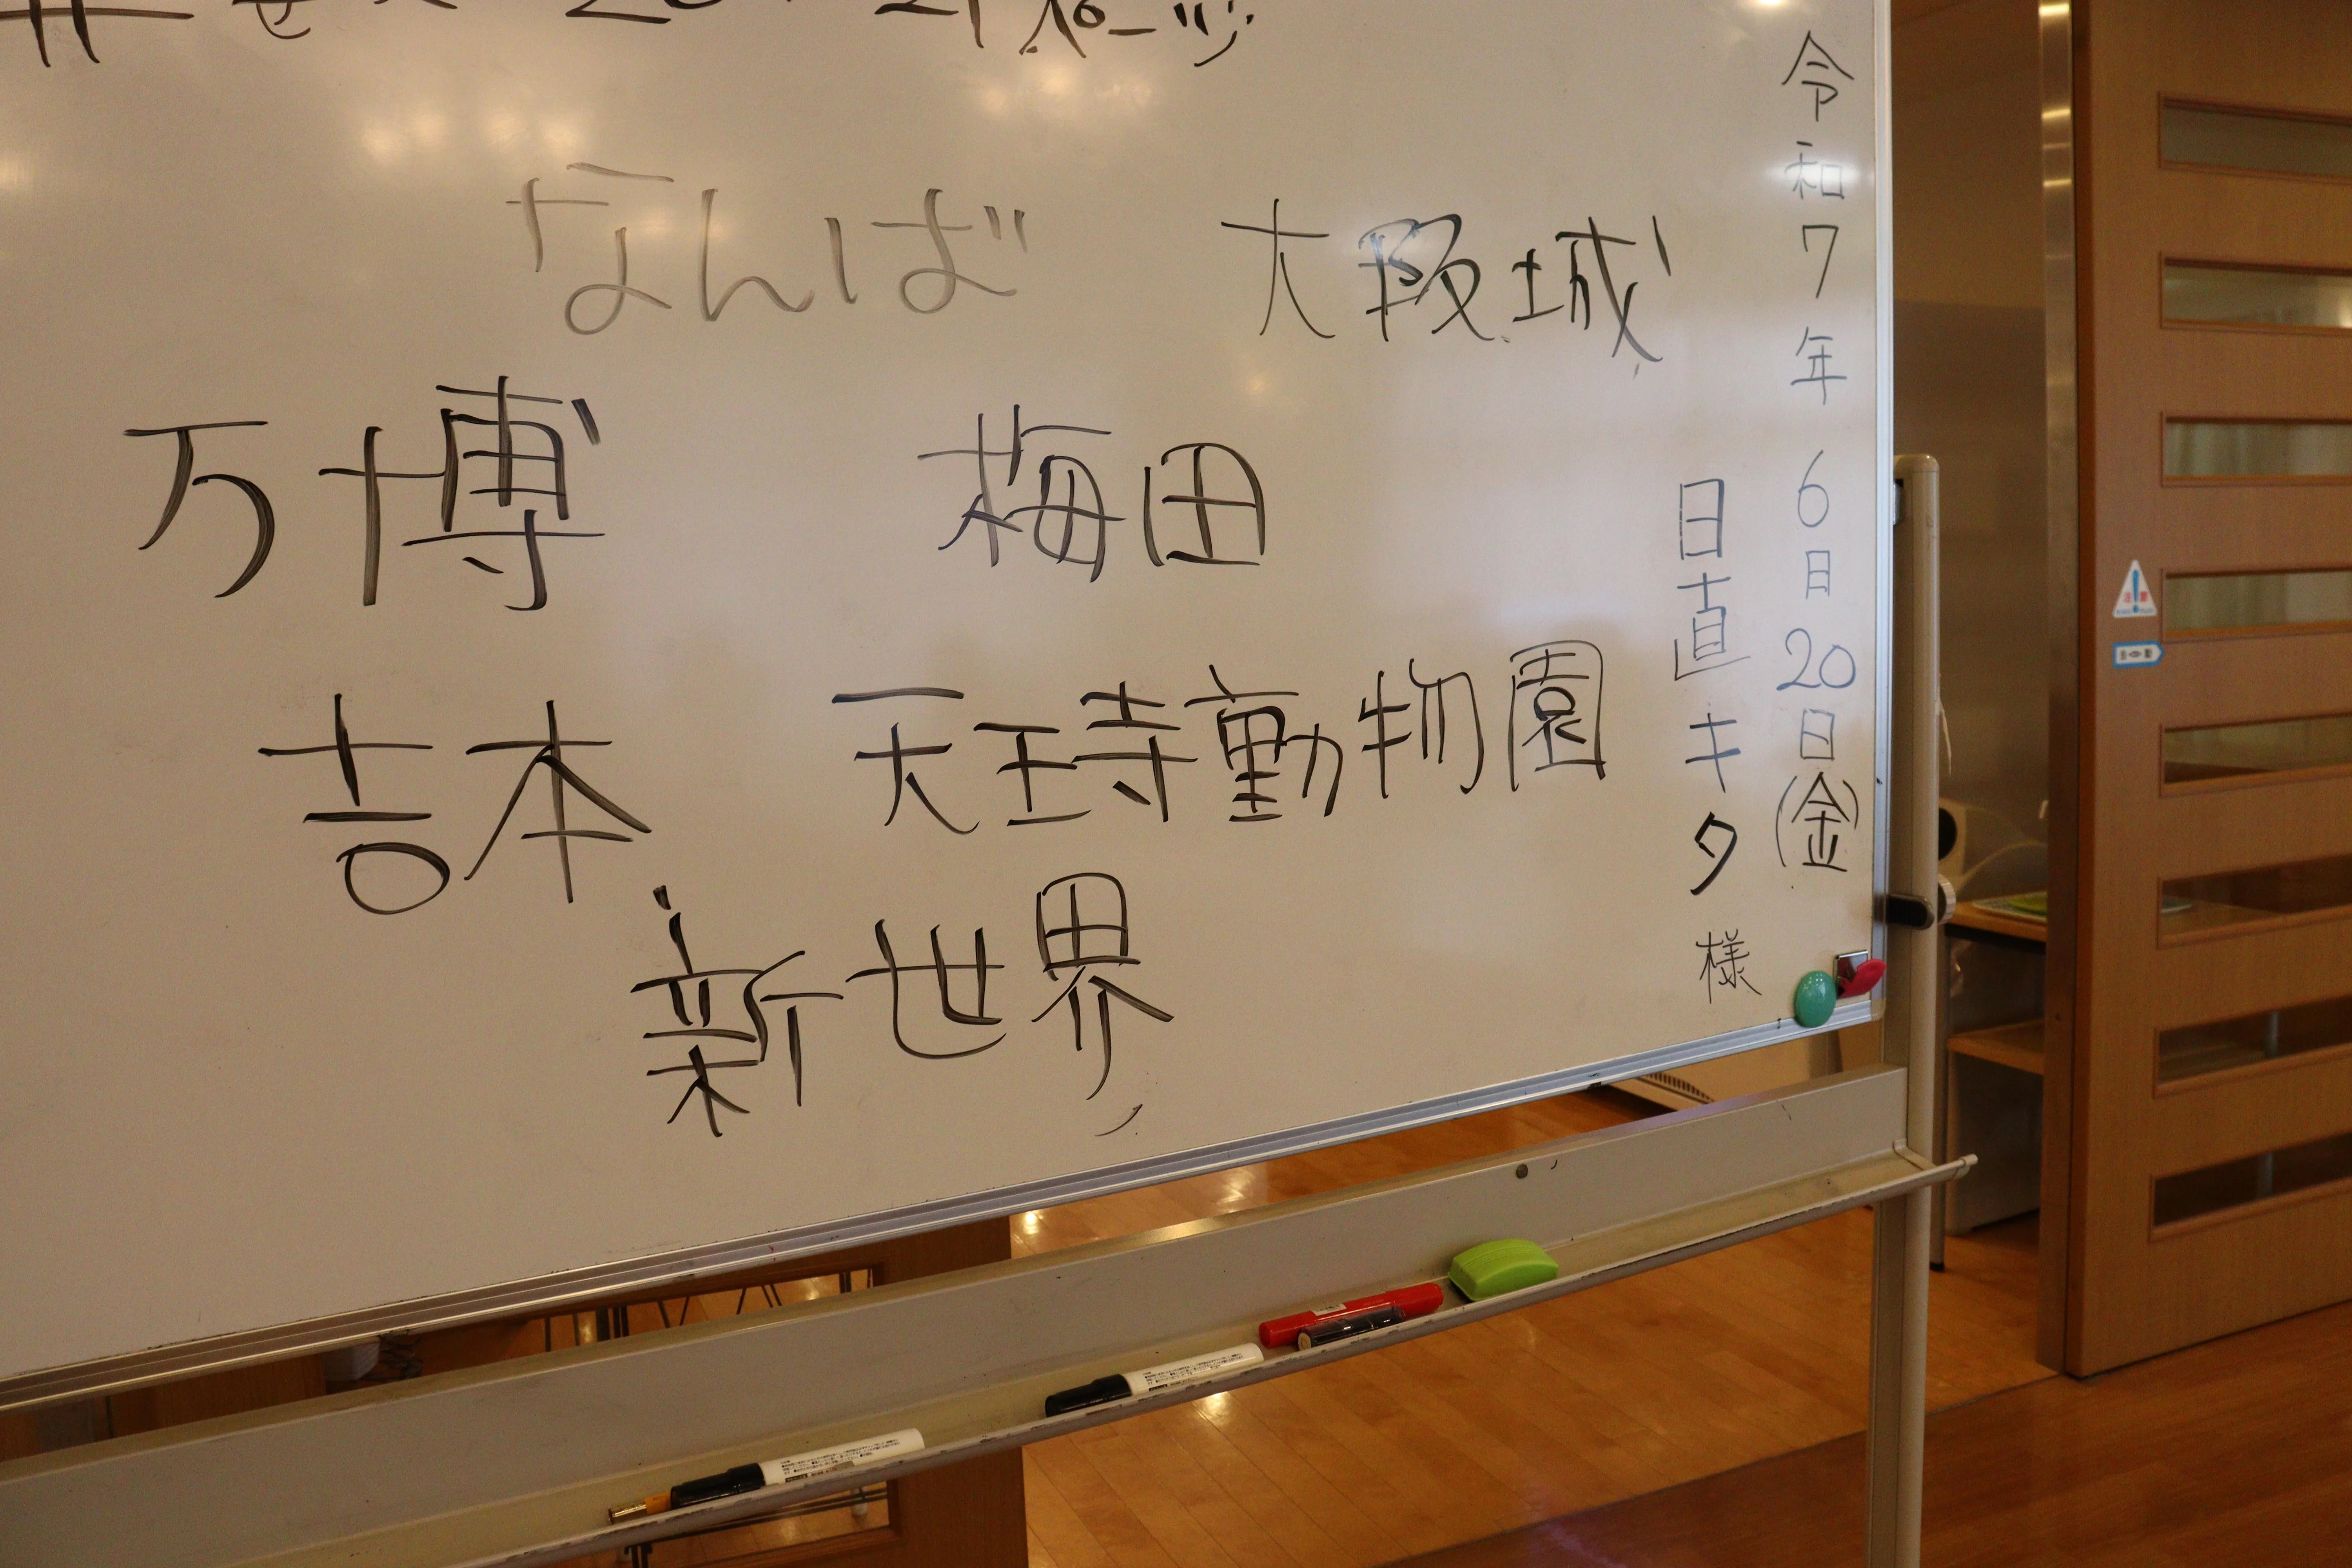 20・21ページ
令和7年6月20日(金)
日直キタ様
なんば 大阪城
万博 梅田
吉本 天王寺動物園
新世界